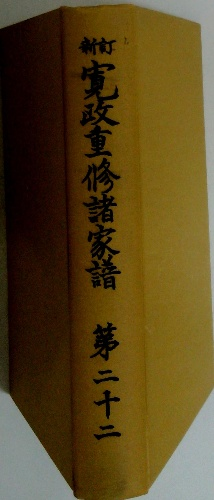 新訂
寛政重脩諸家譜
第二十二